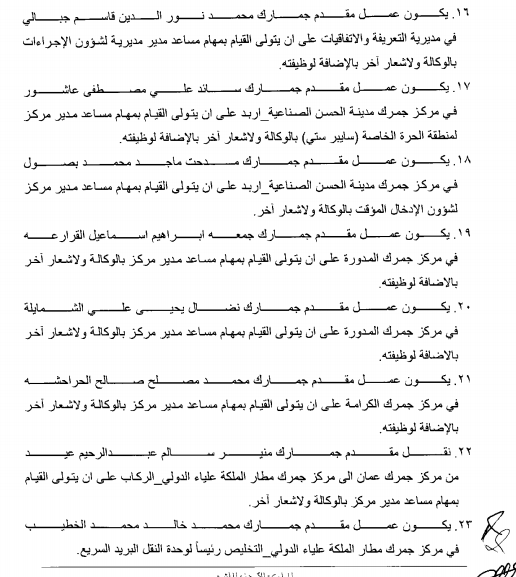 ١٦. يكون عمل مقدم جمارك محمد نور الدين قاسم جبالي
في مديرية التعريفة والاتفاقيات على ان يتولى القيام بمهام مساعد مدير مديرية لشؤون الإجراءات
بالوكالة ولاشعار آخر بالإضافة لوظيفته.
١٧. يكون عمل مقدم جمارك سائد علي مصطفى عاشور
في مركز جمرك مدينة الحسن الصناعية_اربد على ان يتولى القيام بمهام مساعد مدير مركز
لمنطقة الحرة الخاصة (سايبر ستي) بالوكالة ولاشعار آخر بالإضافة لوظيفته.
١٨. يكون عمل مقدم جمارك مدحت ماجد محمد بصول
في مركز جمرك مدينة الحسن الصناعية_اربد على ان يتولى القيام بمهام مساعد مدير مركز
لشؤون الإدخال المؤقت بالوكالة ولاشعار آخر.
١٩. يكون عمل مقدم جمارك جمعه ابراهيم اسماعيل القرارعه
في مركز جمرك المدورة على ان يتولى القيام بمهام مساعد مدير مركز بالوكالة ولاشعار آخر
بالاضافة لوظيفته.
٢٠. يكون عمل مقدم جمارك نضال يحيى علي الشمايلة
في مركز جمرك المدورة على ان يتولى القيام بمهام مساعد مدير مركز بالوكالة ولاشعار آخر
بالاضافة لوظيفته.
٢١. يكون عمل مقدم جمارك محمد مصلح صالح الحراحشه
في مركز جمرك الكرامة على ان يتولى القيام بمهام مساعد مدير مركز بالوكالة ولاشعار آخر
بالإضافة لوظيفته.
٢٢. نقل مقدم جمارك منير سالم عبدالرحيم عيد
من مركز جمرك عمان الى مركز جمرك مطار الملكة علياء الدولي_الركاب على ان يتولى القيام
بمهام مساعد مدير مركز بالوكالة ولاشعار آخر.
٢٣. يكون عمل مقدم جمارك محمد خالد محمد الخطيب
في مركز جمرك مطار الملكة علياء الدولي_التخليص رئيساً لوحدة النقل البريد السريع.